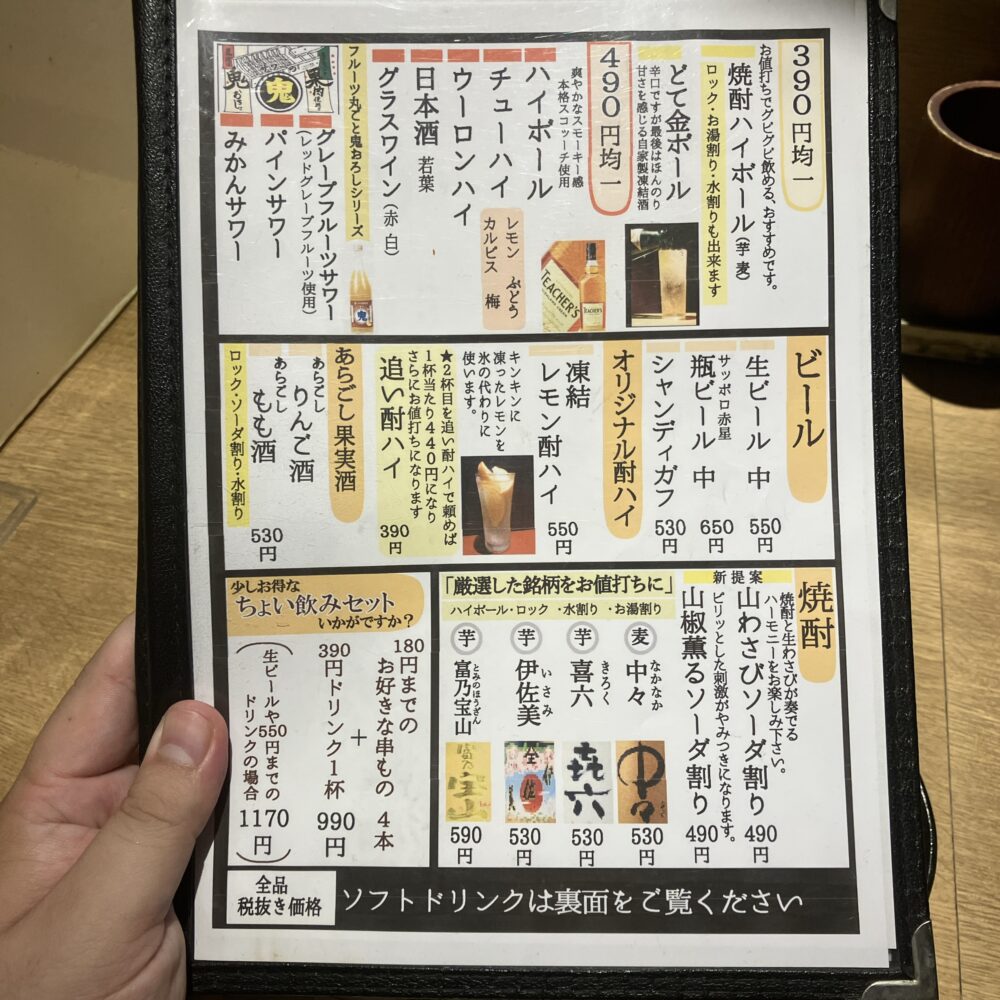 390円均一
お値打ちでグビグビ飲める、おすすめです。
焼酎ハイボール(芋 麦)
ロック・お湯割り・水割りも出来ます
どて金ボール
辛口ですが最後はほんのり
甘さを感じる自家製凍結酒
490円均一
爽やかなスモーキー感
本格スコッチ使用
ハイボール
チューハイ
レモン ぶどう
カルピス 梅
ウーロンハイ
日本酒 若葉
グラスワイン(赤 白)
TEACHER'S
TEACHER'S
フルーツ丸ごと鬼おろしシリーズ
グレープフルーツサワー
(レッドグレープフルーツ使用)
パインサワー
みかんサワー
鬼
鬼
鬼
ビール
生ビール 中 550円
サッポロ赤星
瓶ビール 中 650円
シャンディガフ 530円
オリジナル酎ハイ
凍結
レモン酎ハイ 550円
キンキンに
凍ったレモンを
氷の代わりに
使います。
★2杯目を追い酎ハイで頼めば
1杯当たり440円になり
さらにお値打ちになります
追い酎ハイ 390円
あらごし果実酒
あらごし りんご酒
あらごし もも酒
530円
ロック・ソーダ割り・水割り
焼酎
焼酎と生わさびが奏でる
ハーモニーをお楽しみ下さい。
新提案
山わさびソーダ割り 490円
ピリッとした刺激がやみつきになります。
山椒薫るソーダ割り 490円
「厳選した銘柄をお値打ちに」
ハイボール・ロック・水割り・お湯割り
麦 中々 なかなか 530円
芋 喜六 きろく 530円
芋 伊佐美 いさみ 530円
芋 富乃宝山 とみのほうざん 590円
少しお得な
ちょい飲みセット
いかがですか?
180円までの
お好きな串もの 4本
+
390円ドリンク1杯 990円
(生ビールや550円までの
ドリンクの場合 1170円)
全品
税抜き価格
ソフトドリンクは裏面をご覧ください